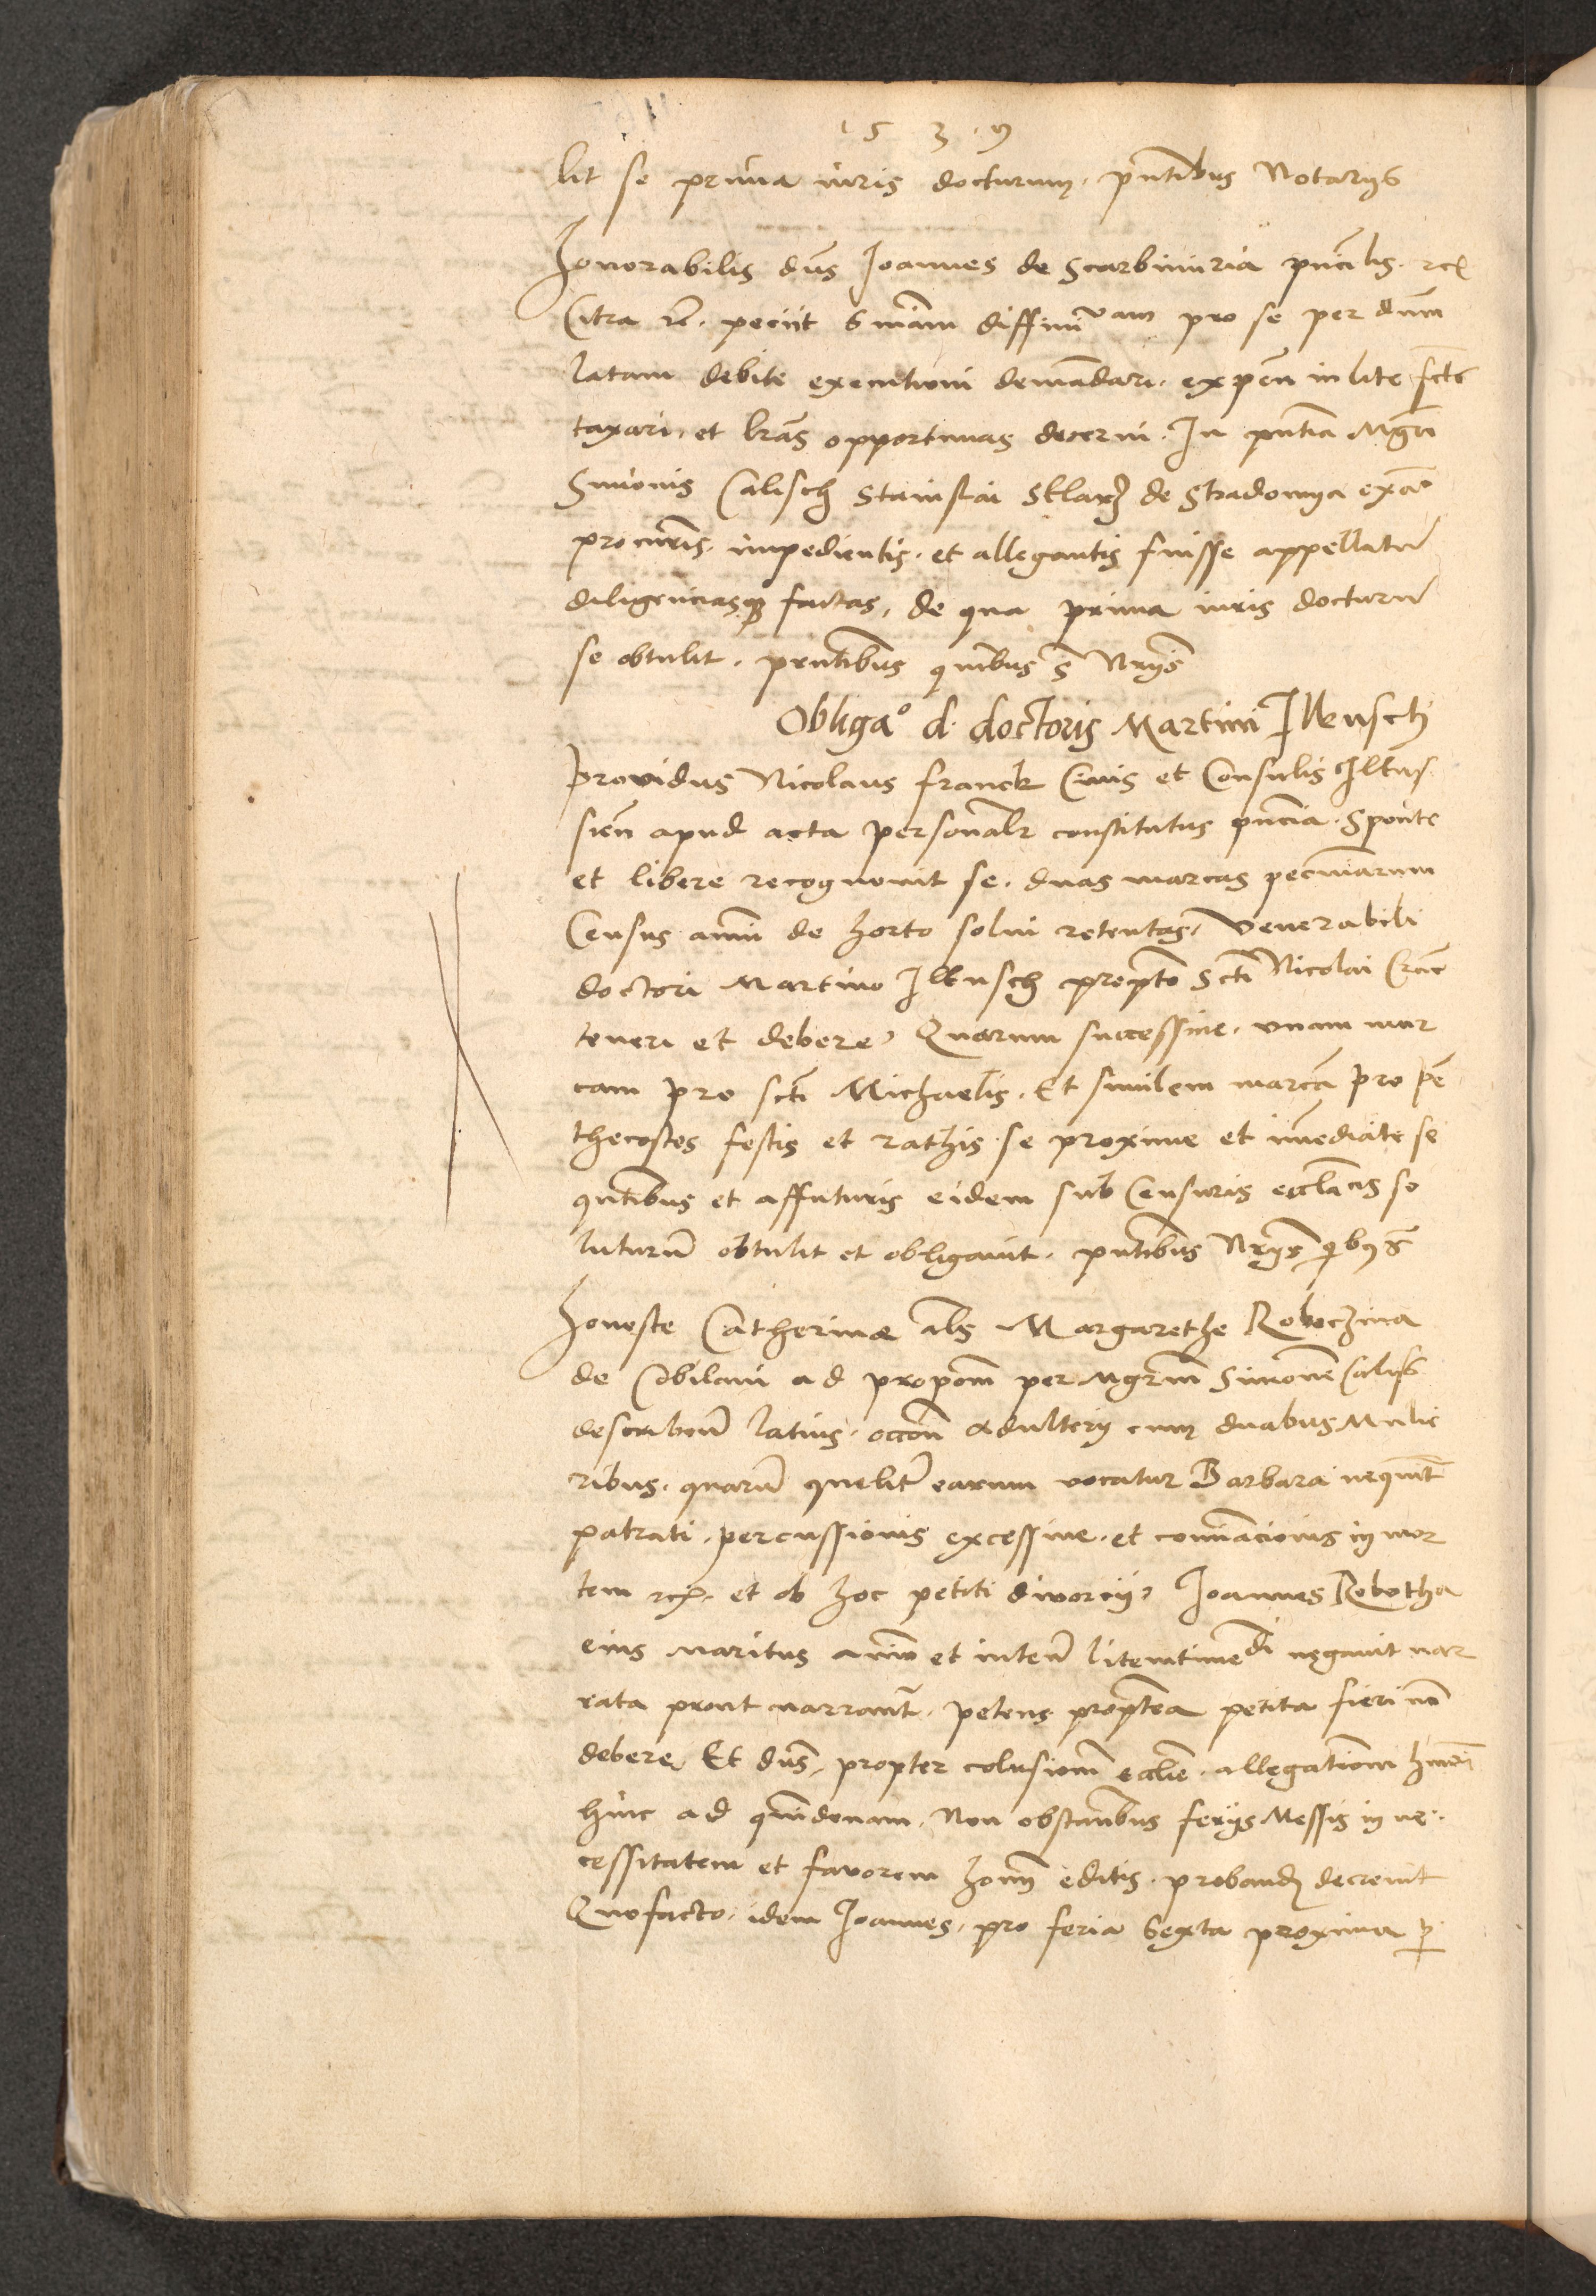 1 5 3 9
lit se prima iuris docturum. pntibus Notarys
Honorabilis dns Ioannes de Scarbimiria pncalis. rcl
Citra rc. peciit sniam diffinivam pro se per dnm
latam debite executioni demandari. expen in lite fcts
taxari. et lras opportunas decerni. In pntia Mgri
Simonis Calisch Stainslai Sklarz de Stradomya exa
procuris. impedientis. et allegantis fuisse appellatu
diligenciasq factas, de qua prima iuris docturu
se obtulit. prntibus quibus s Nrys
Obliga° d. doctoris Martini Ilkusch
Providus Nicolaus Franck Civis et Consulis Ilkus
sien apud acta personalr constitutus pncia. Sponte
et libere recognovit se. duas marcas pecuniarum
Census anni de horto solui retentas, Venerabili
doctori Martino Ilkusch prepto Scti Nicolai Crac
teneri et debere, Quarum successive. unam mar
cam pro scti Michaelis. Et similem marca pro pe
thecostes festis et rathis se proxime et imediate se
qntibus et affuturis eidem sub Censuris ecclacis so
luturu obtulit et obligavit. pntibus Nrys qibus s
Honeste Catherine als Margarethe Roboczina
de Cobilani ad propom per Mgrm Simone Calis
describen latius. occon adultery cum duabus Mulie
ribus. quaru quelit earum vocatur Barbara nequit
patrati. percussionis excessive. et cominacionis in mor
tem rcl. et ob hoc petiti divorcii, Ioannes Robotha
eius maritus animo et inten litemtimedi negavit nar
rata prout narrant. petens proptea petita fieri no
debere, Et dns, propter colusiom ecclie. allegationem
hinc ad quindenam. Non obstantbus ferys Messis in ne
cessitatem et favorem homi editis. proband decrevit
Quofacto. idem Ioannes, pro feria Sexta proxima p